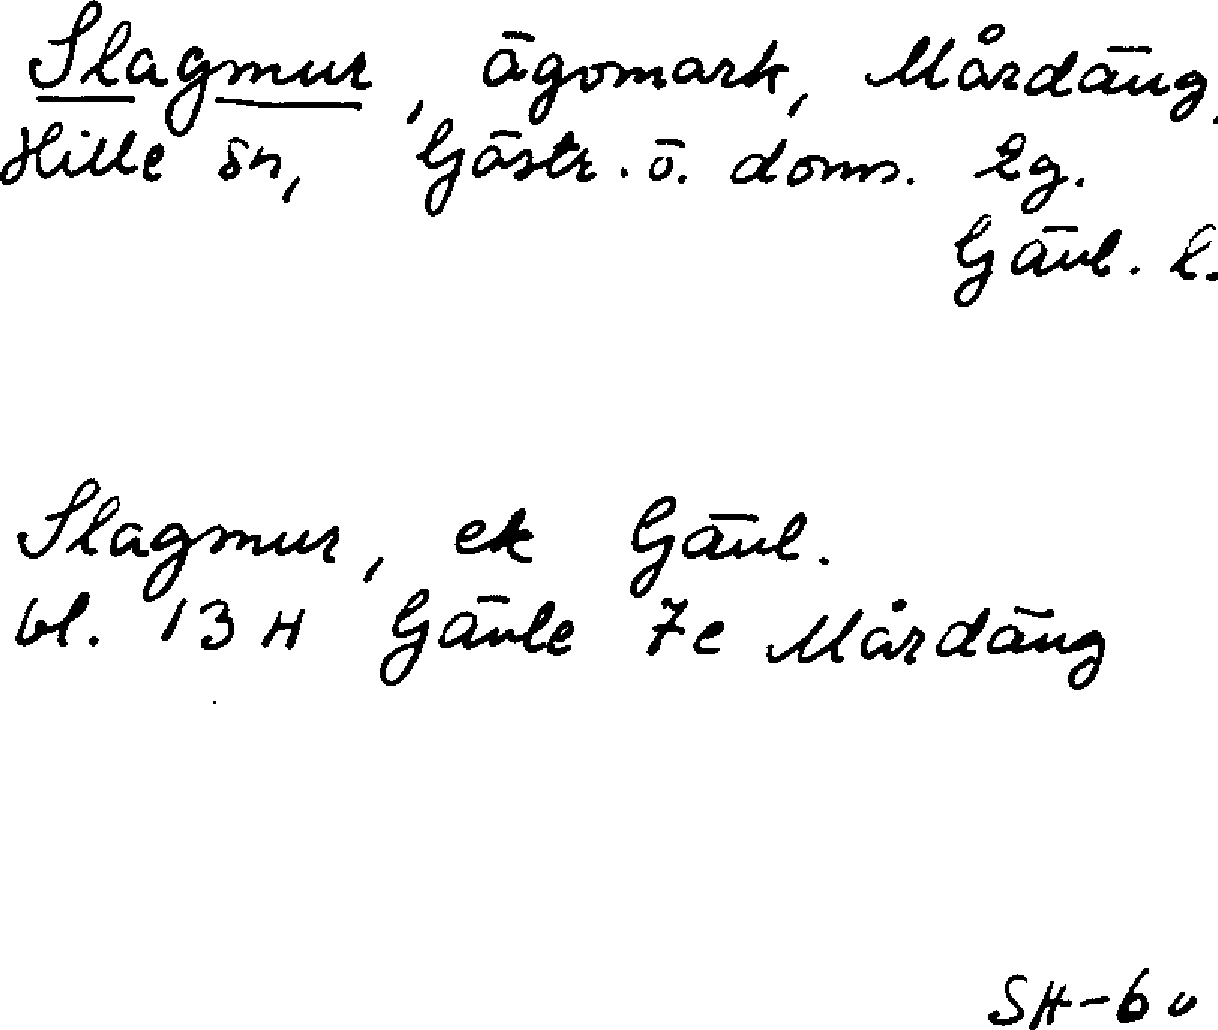 Slagmur, ägomark, Mårdäng,
Hille sn, Gästr. ö. doms. lg.
Gävl. l.
Slagmur, ek Gävl.
bl. 13 H Gävle 7e Mårdäng
SH-60